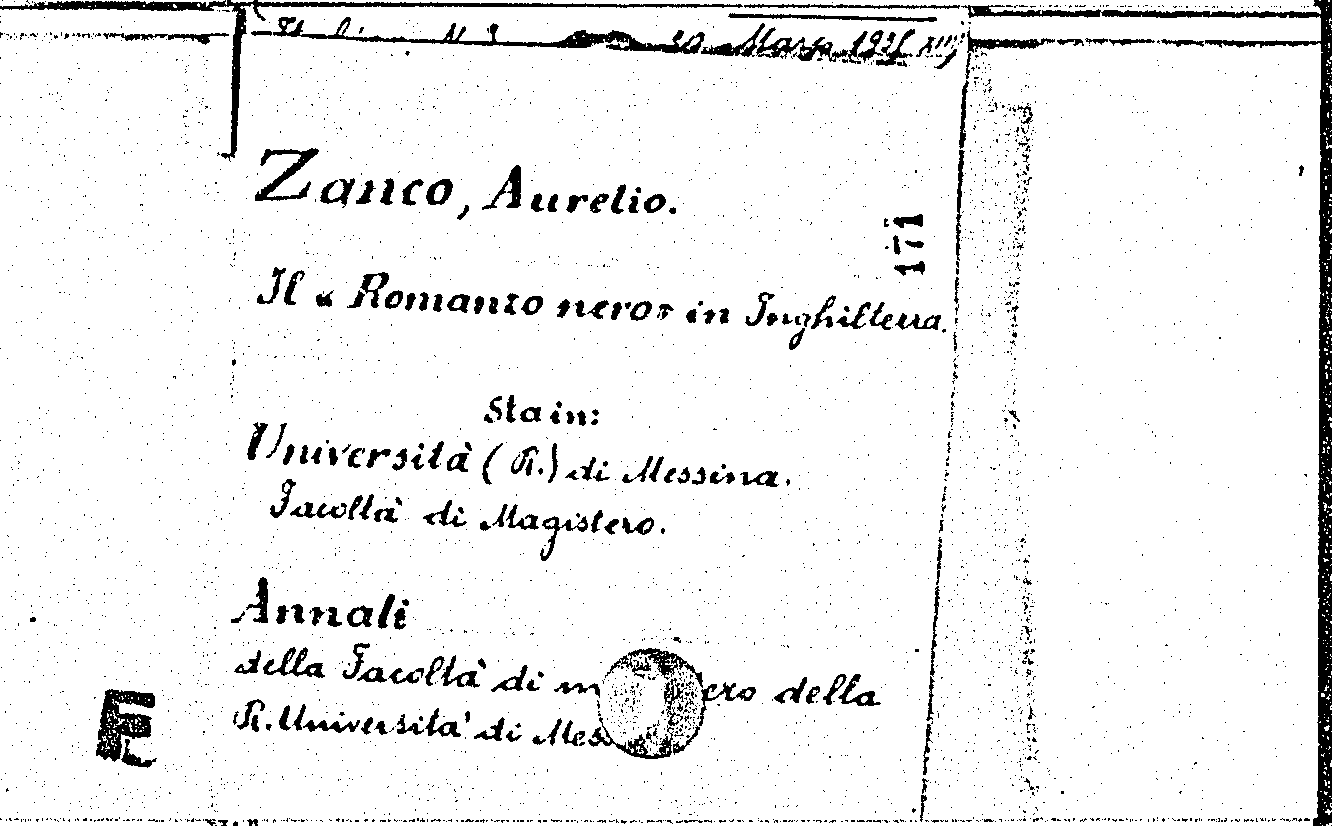 20 Marzo 193 XIII
Zanco, Aurelio.
171
Il « Romanzo nero» in Inghilterra.
Sta in:
Università (R.) di Messina.
Facoltà di Magistero.
Annali
della Facoltà di della
R. Università di